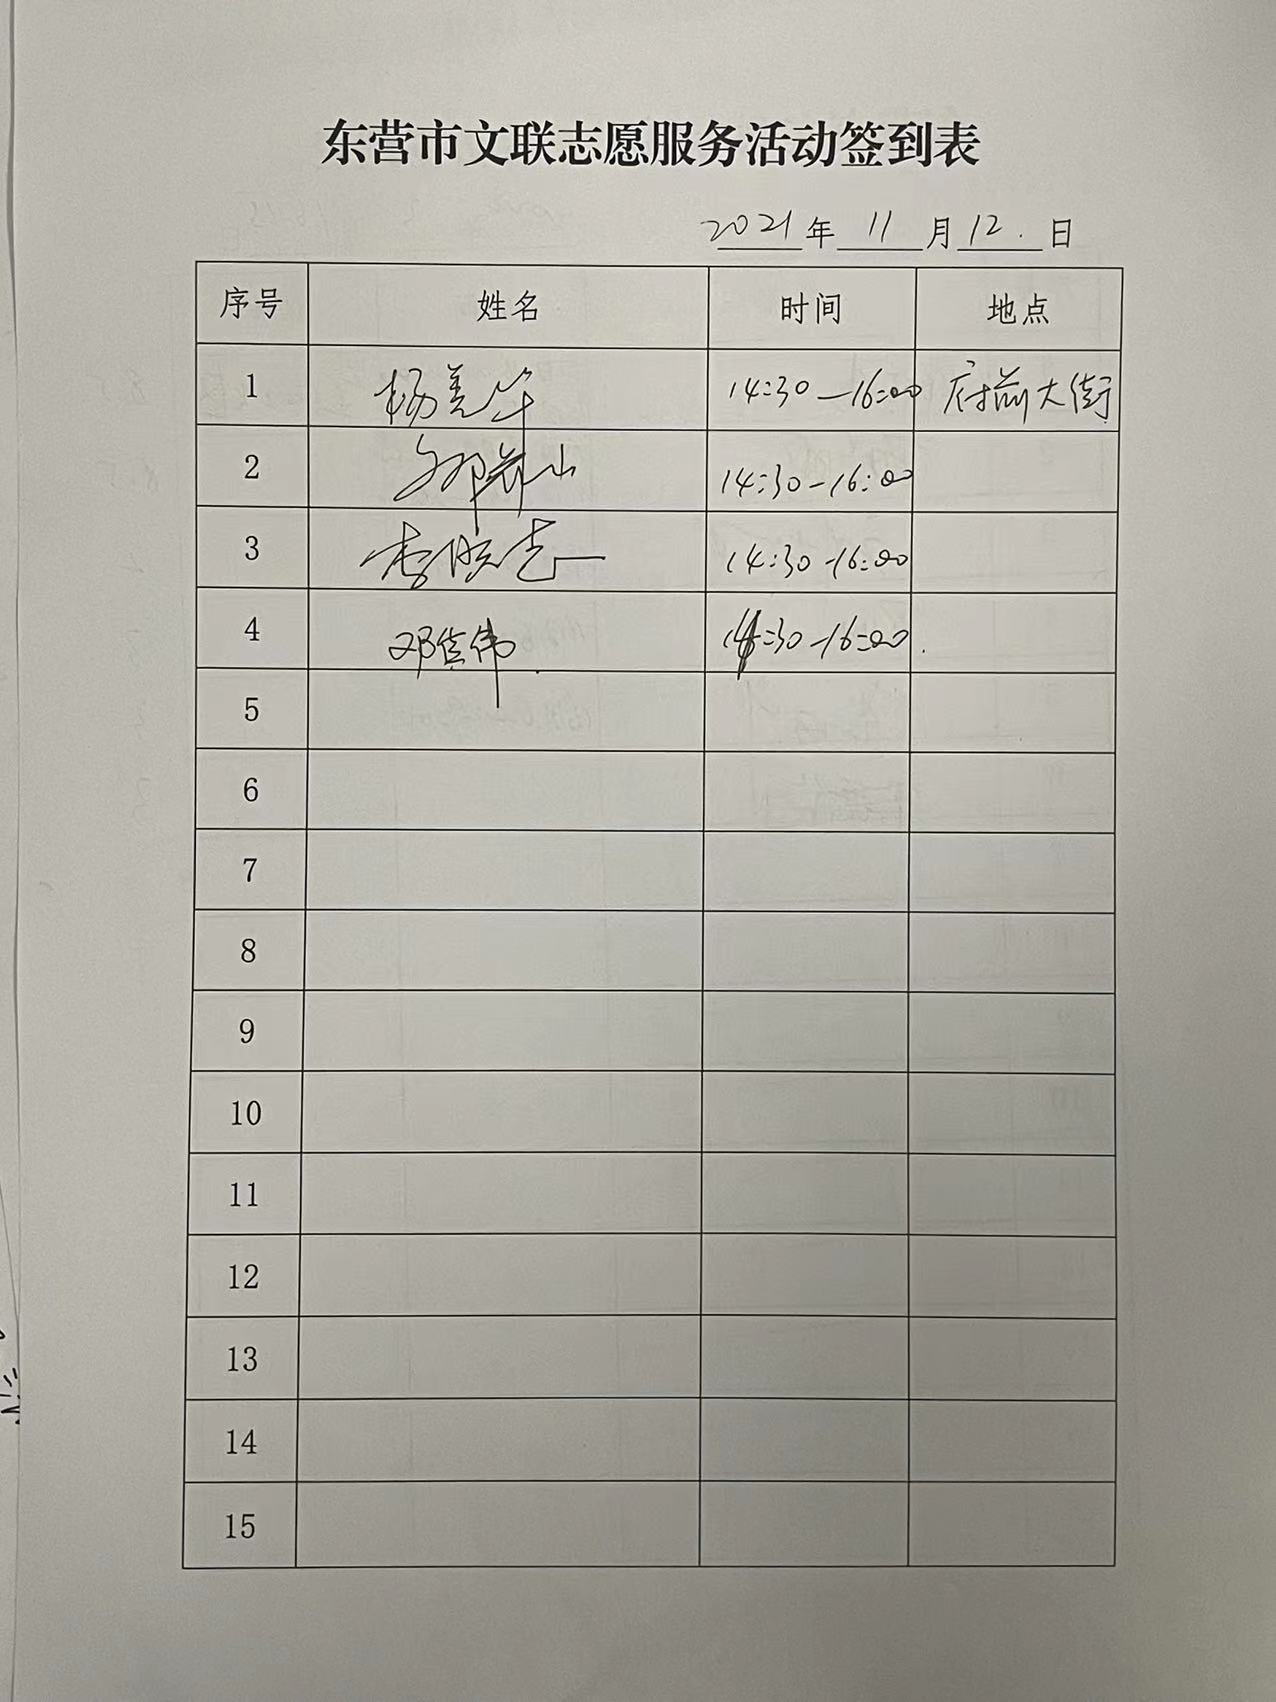 东营市文联志愿服务活动签到表
2021年11月12.日
序号 姓名 时间 地点
1 杨美华 14:30—16:00 府前大街
2 14:30-16:00
3 李晓亮 14:30-16:00
4 邓佳伟 14:30-16:00
5
6
7
8
9
10
11
12
13
14
15